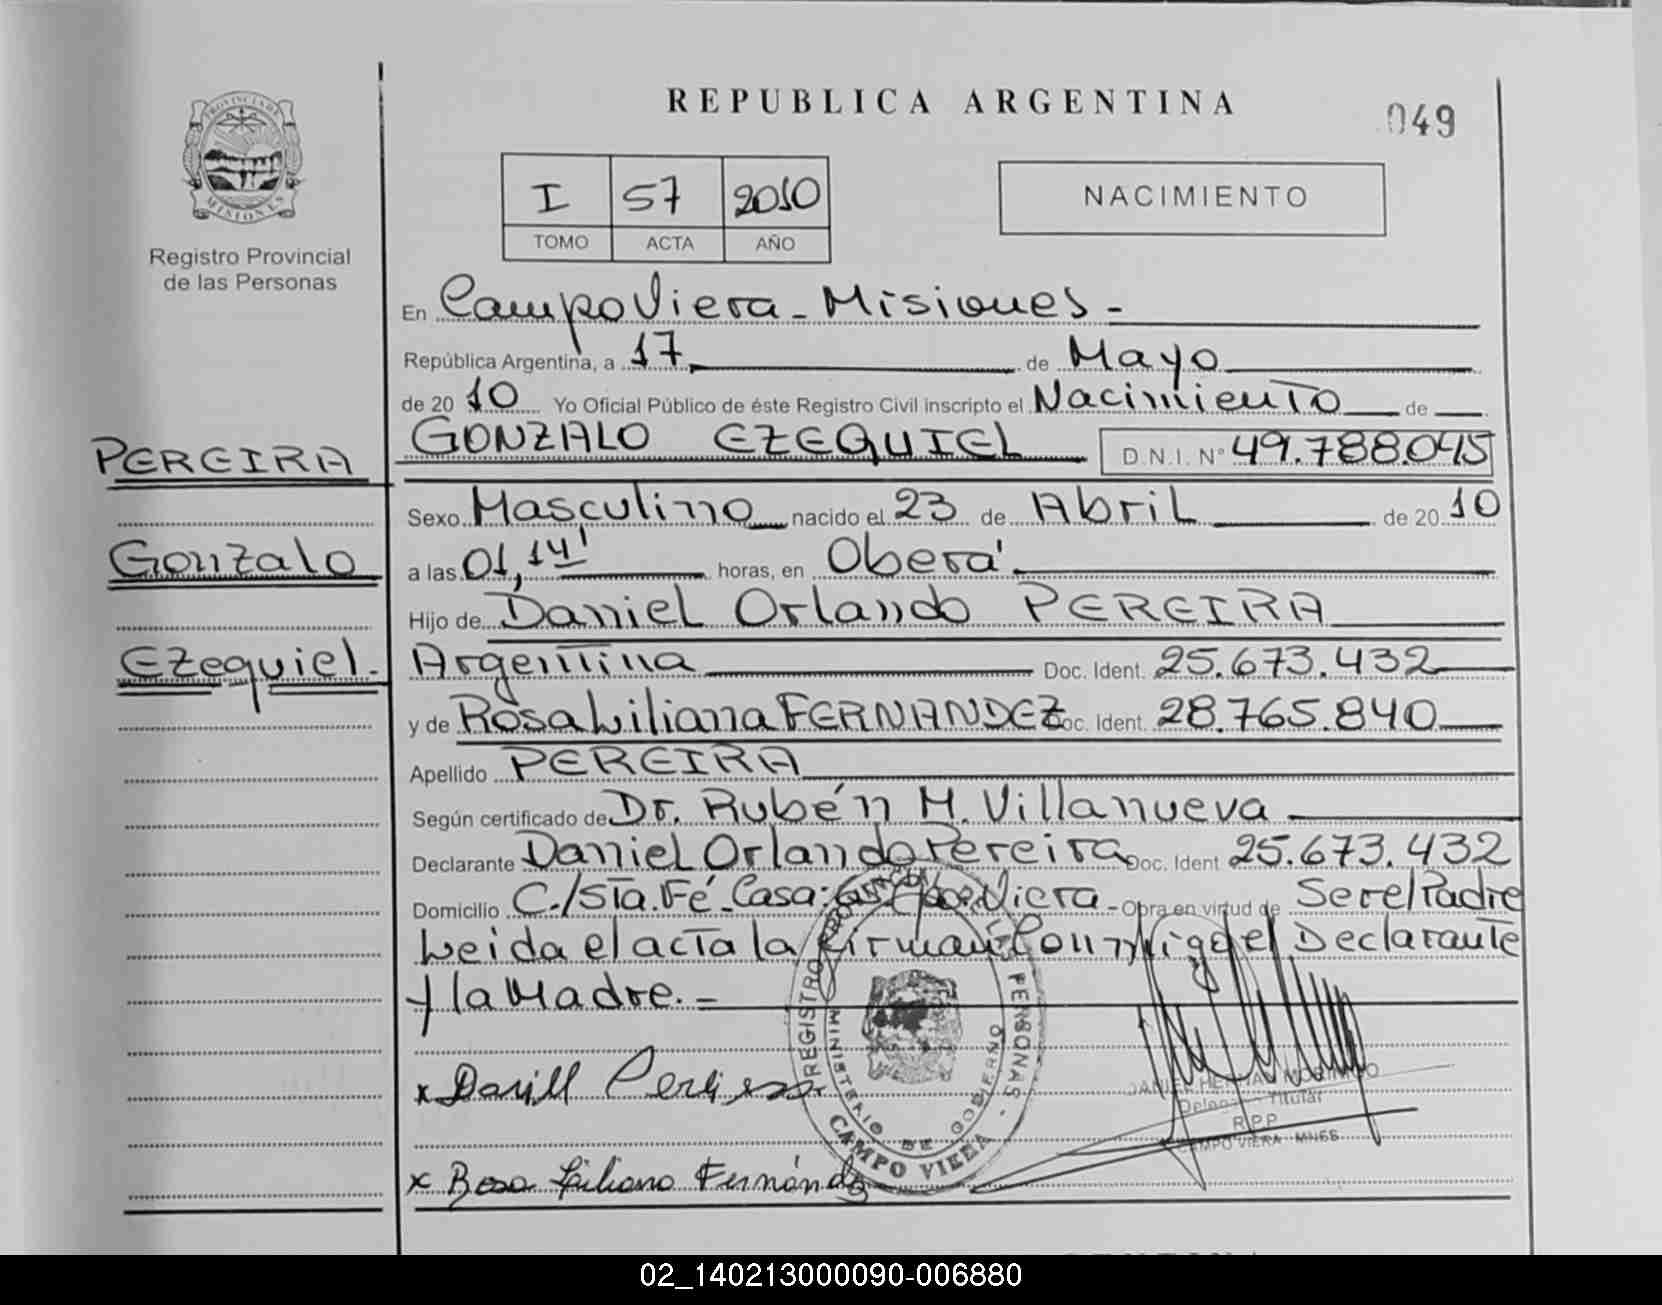 REPUBLICA ARGENTINA
049
PROVINCIA DE
MISIONES
Registro Provincial
de las Personas
I 57 2010
TOMO ACTA AÑO
NACIMIENTO
En Campo Viera - Misiones -
República Argentina, a 17 de Mayo
de 2010 Yo Oficial Público de éste Registro Civil inscripto el Nacimiento de
PEREIRA
Gonzalo
Ezequiel.-
GONZALO EZEQUIEL D.N.I. N° 49.788.045
Sexo Masculino nacido el 23 de Abril de 2010
a las 01,14' horas, en Oberá.
Hijo de Daniel Orlando PEREIRA
Argentina Doc. Ident. 25.673.432
y de Rosa Liliana FERNANDEZ Doc. Ident. 28.765.840
Apellido PEREIRA
Según certificado de Dr. Rubén M. Villanueva
Declarante Daniel Orlando Pereira Doc. Ident 25.673.432
Domicilio C./Sta.Fé-Casa: Viera - Obra en virtud de Ser el Padre
Leida el acta la firman Conmigo el Declarante
y la Madre. -
REGISTRO PROVINCIAL DE LAS PERSONAS -
MINISTERIO DE GOBIERNO
CAMPO VIERA
x Pereira
DANIEL HERNAN MORINIGO
Delegado Titular
R.P.P
CAMPO VIERA MNES
x Rosa Liliana Fernández
02_140213000090-006880